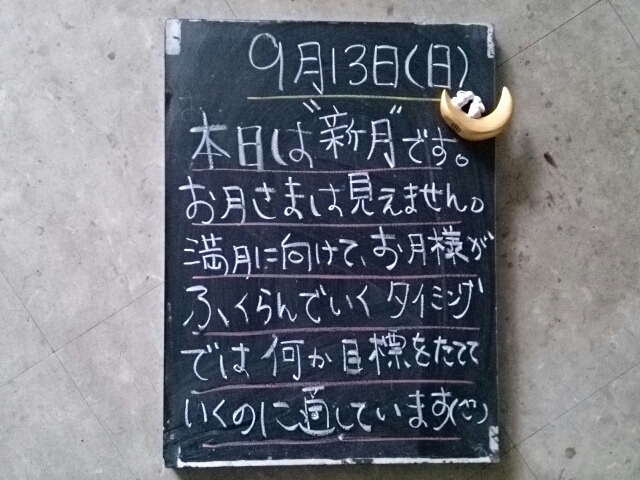 9月13日(日)
本日は"新月"です。
お月さまは見えません。
満月に向けて、お月様が
ふくらんでいくタイミング
では何か目標をたてて
いくのに適しています(^^)